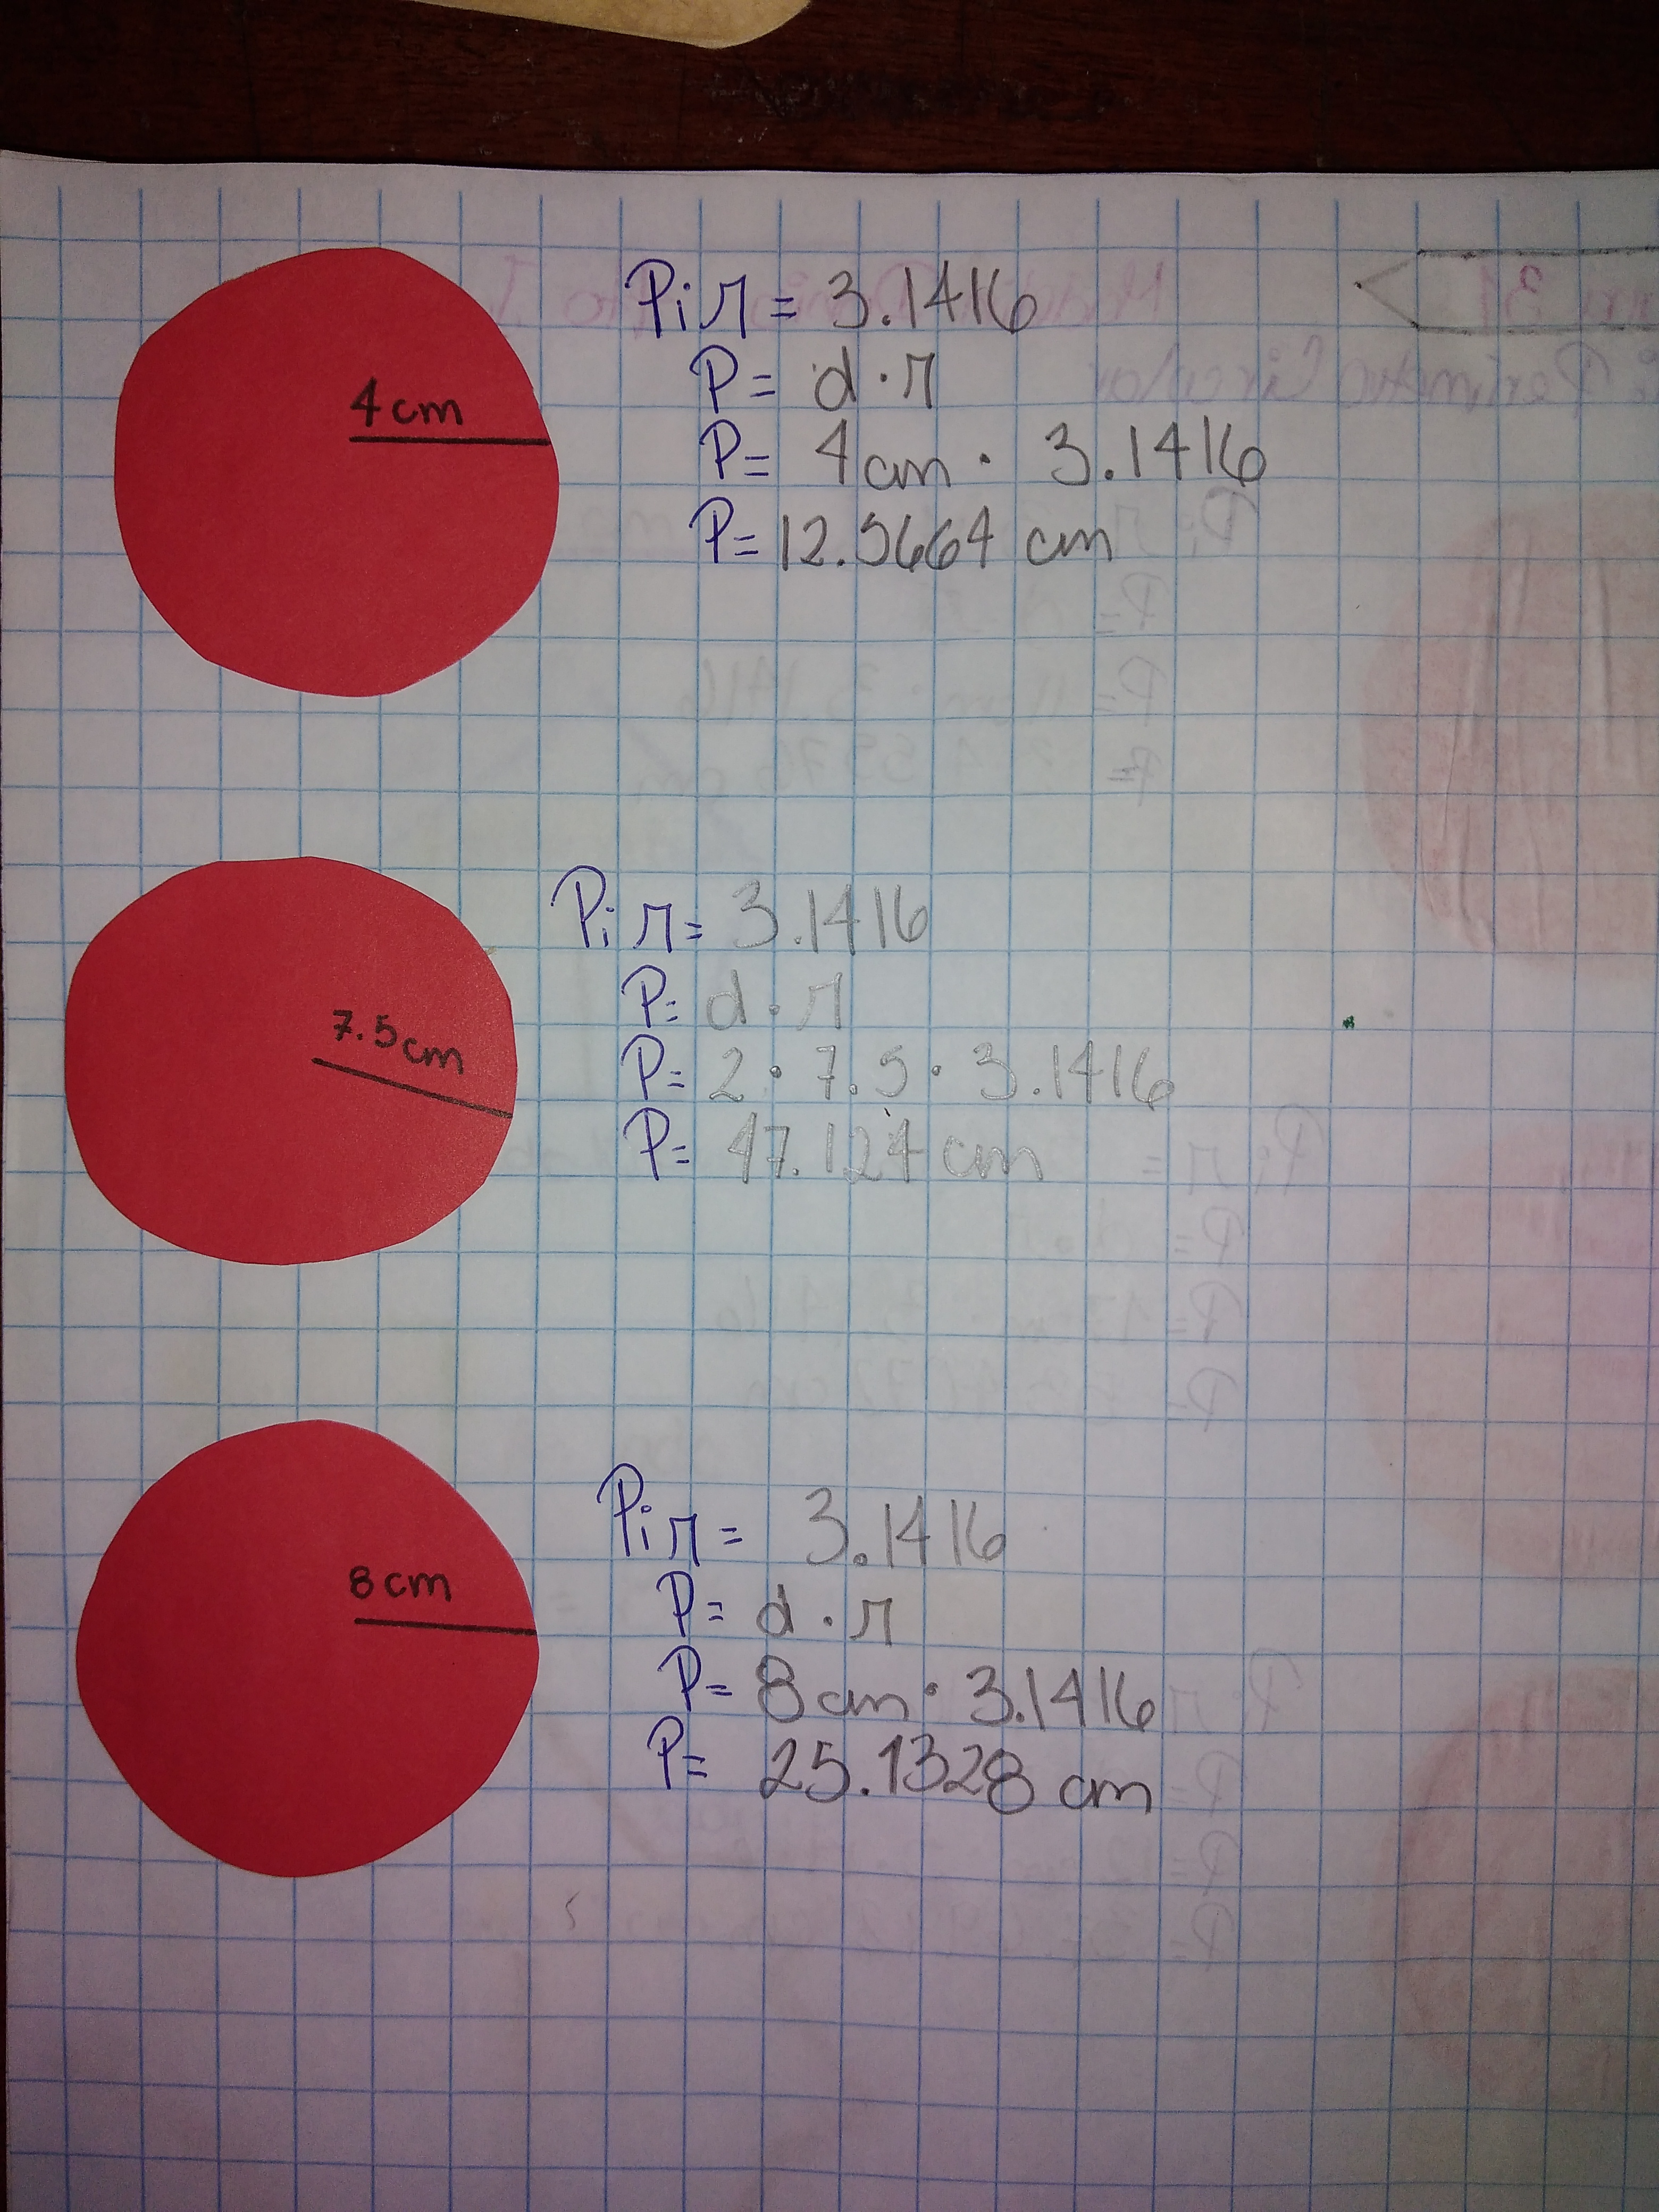 4 cm
Pi π = 3.1416
P = d · π
P = 4 cm · 3.1416
P = 12.5664 cm
7.5 cm
Pi π = 3.1416
P = d · π
P = 2 · 7.5 · 3.1416
P = 47.124 cm
8 cm
Pi π = 3.1416
P = d · π
P = 8 cm · 3.1416
P = 25.1328 cm